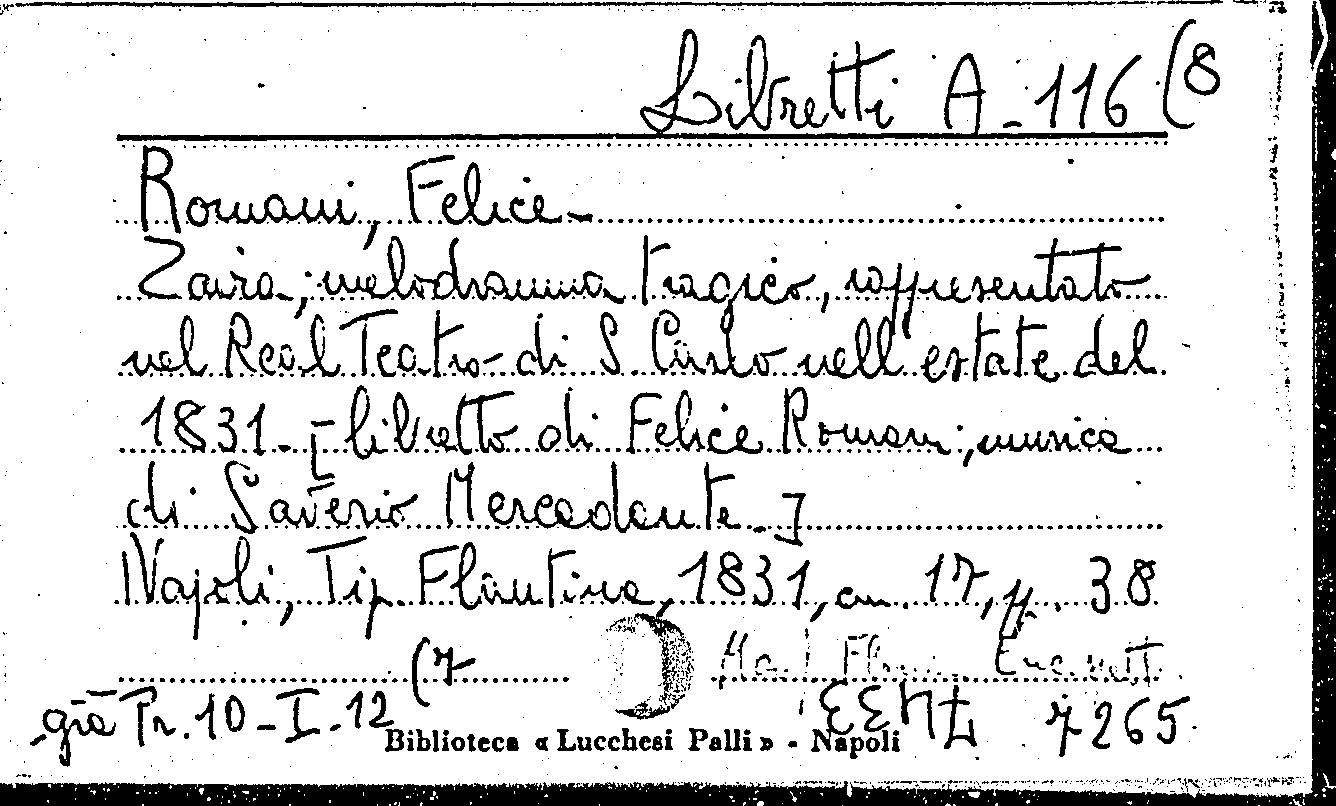 Libretti A-116(8
Romani, Felice-
Zaira; melodramma tragico, rappresentato
nel Real Teatro di S. Carlo nell'estate del
1831-[libretto di Felice Romani; musica
di Saverio Mercadante-]
Napoli, Tip. Flautina, 1831, cm. 17, pp. 38
già Pr. 10-I-12(7
7265
Biblioteca « Lucchesi Palli » - Napoli